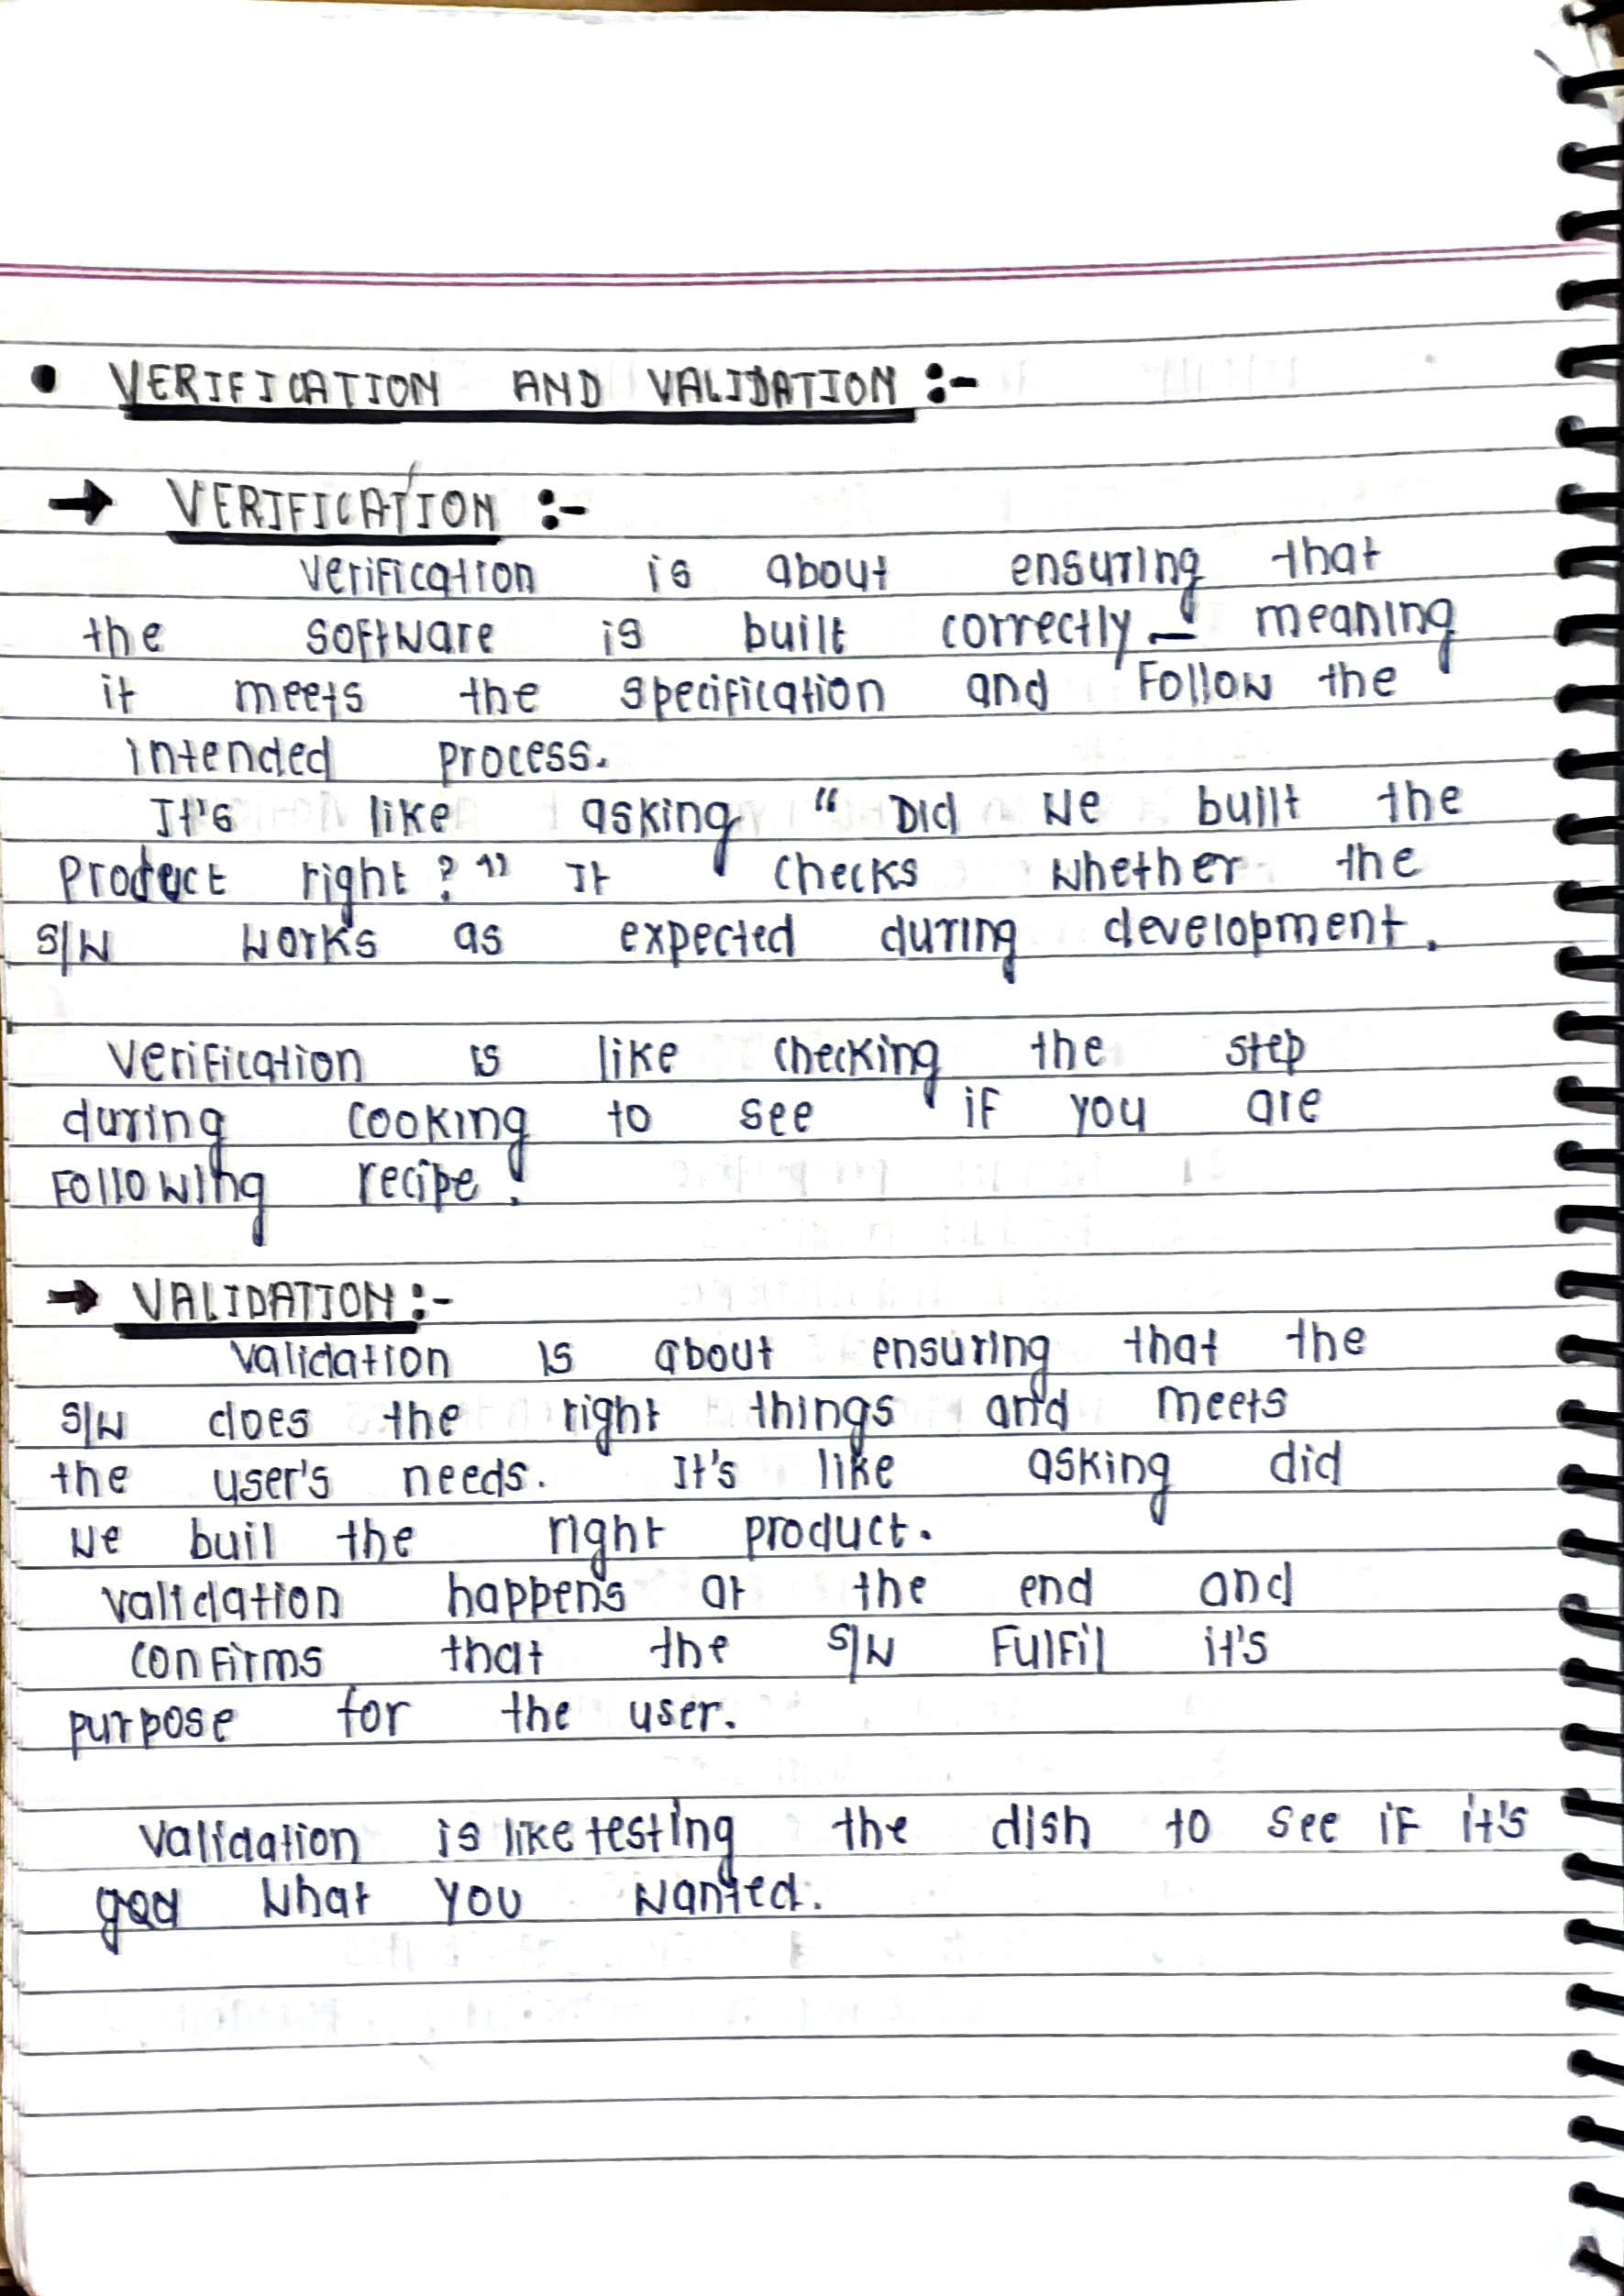 • VERIFICATION AND VALIDATION :-
→ VERIFICATION :-
Verification is about ensuring that
the software is built correctly — meaning
it meets the specification and Follow the
intended process.
It's like asking “ Did we built the
Product right ? ” It checks whether the
S/W works as expected during development.
Verification is like checking the step
during cooking to see if you are
Following recipe.
→ VALIDATION :-
Validation is about ensuring that the
S/W does the right things and meets
the user's needs. It's like asking did
we buil the right product.
Validation happens at the end and
confirms that the S/W Fulfil it's
purpose for the user.
Validation is like testing the dish to see if it's
what you wanted.